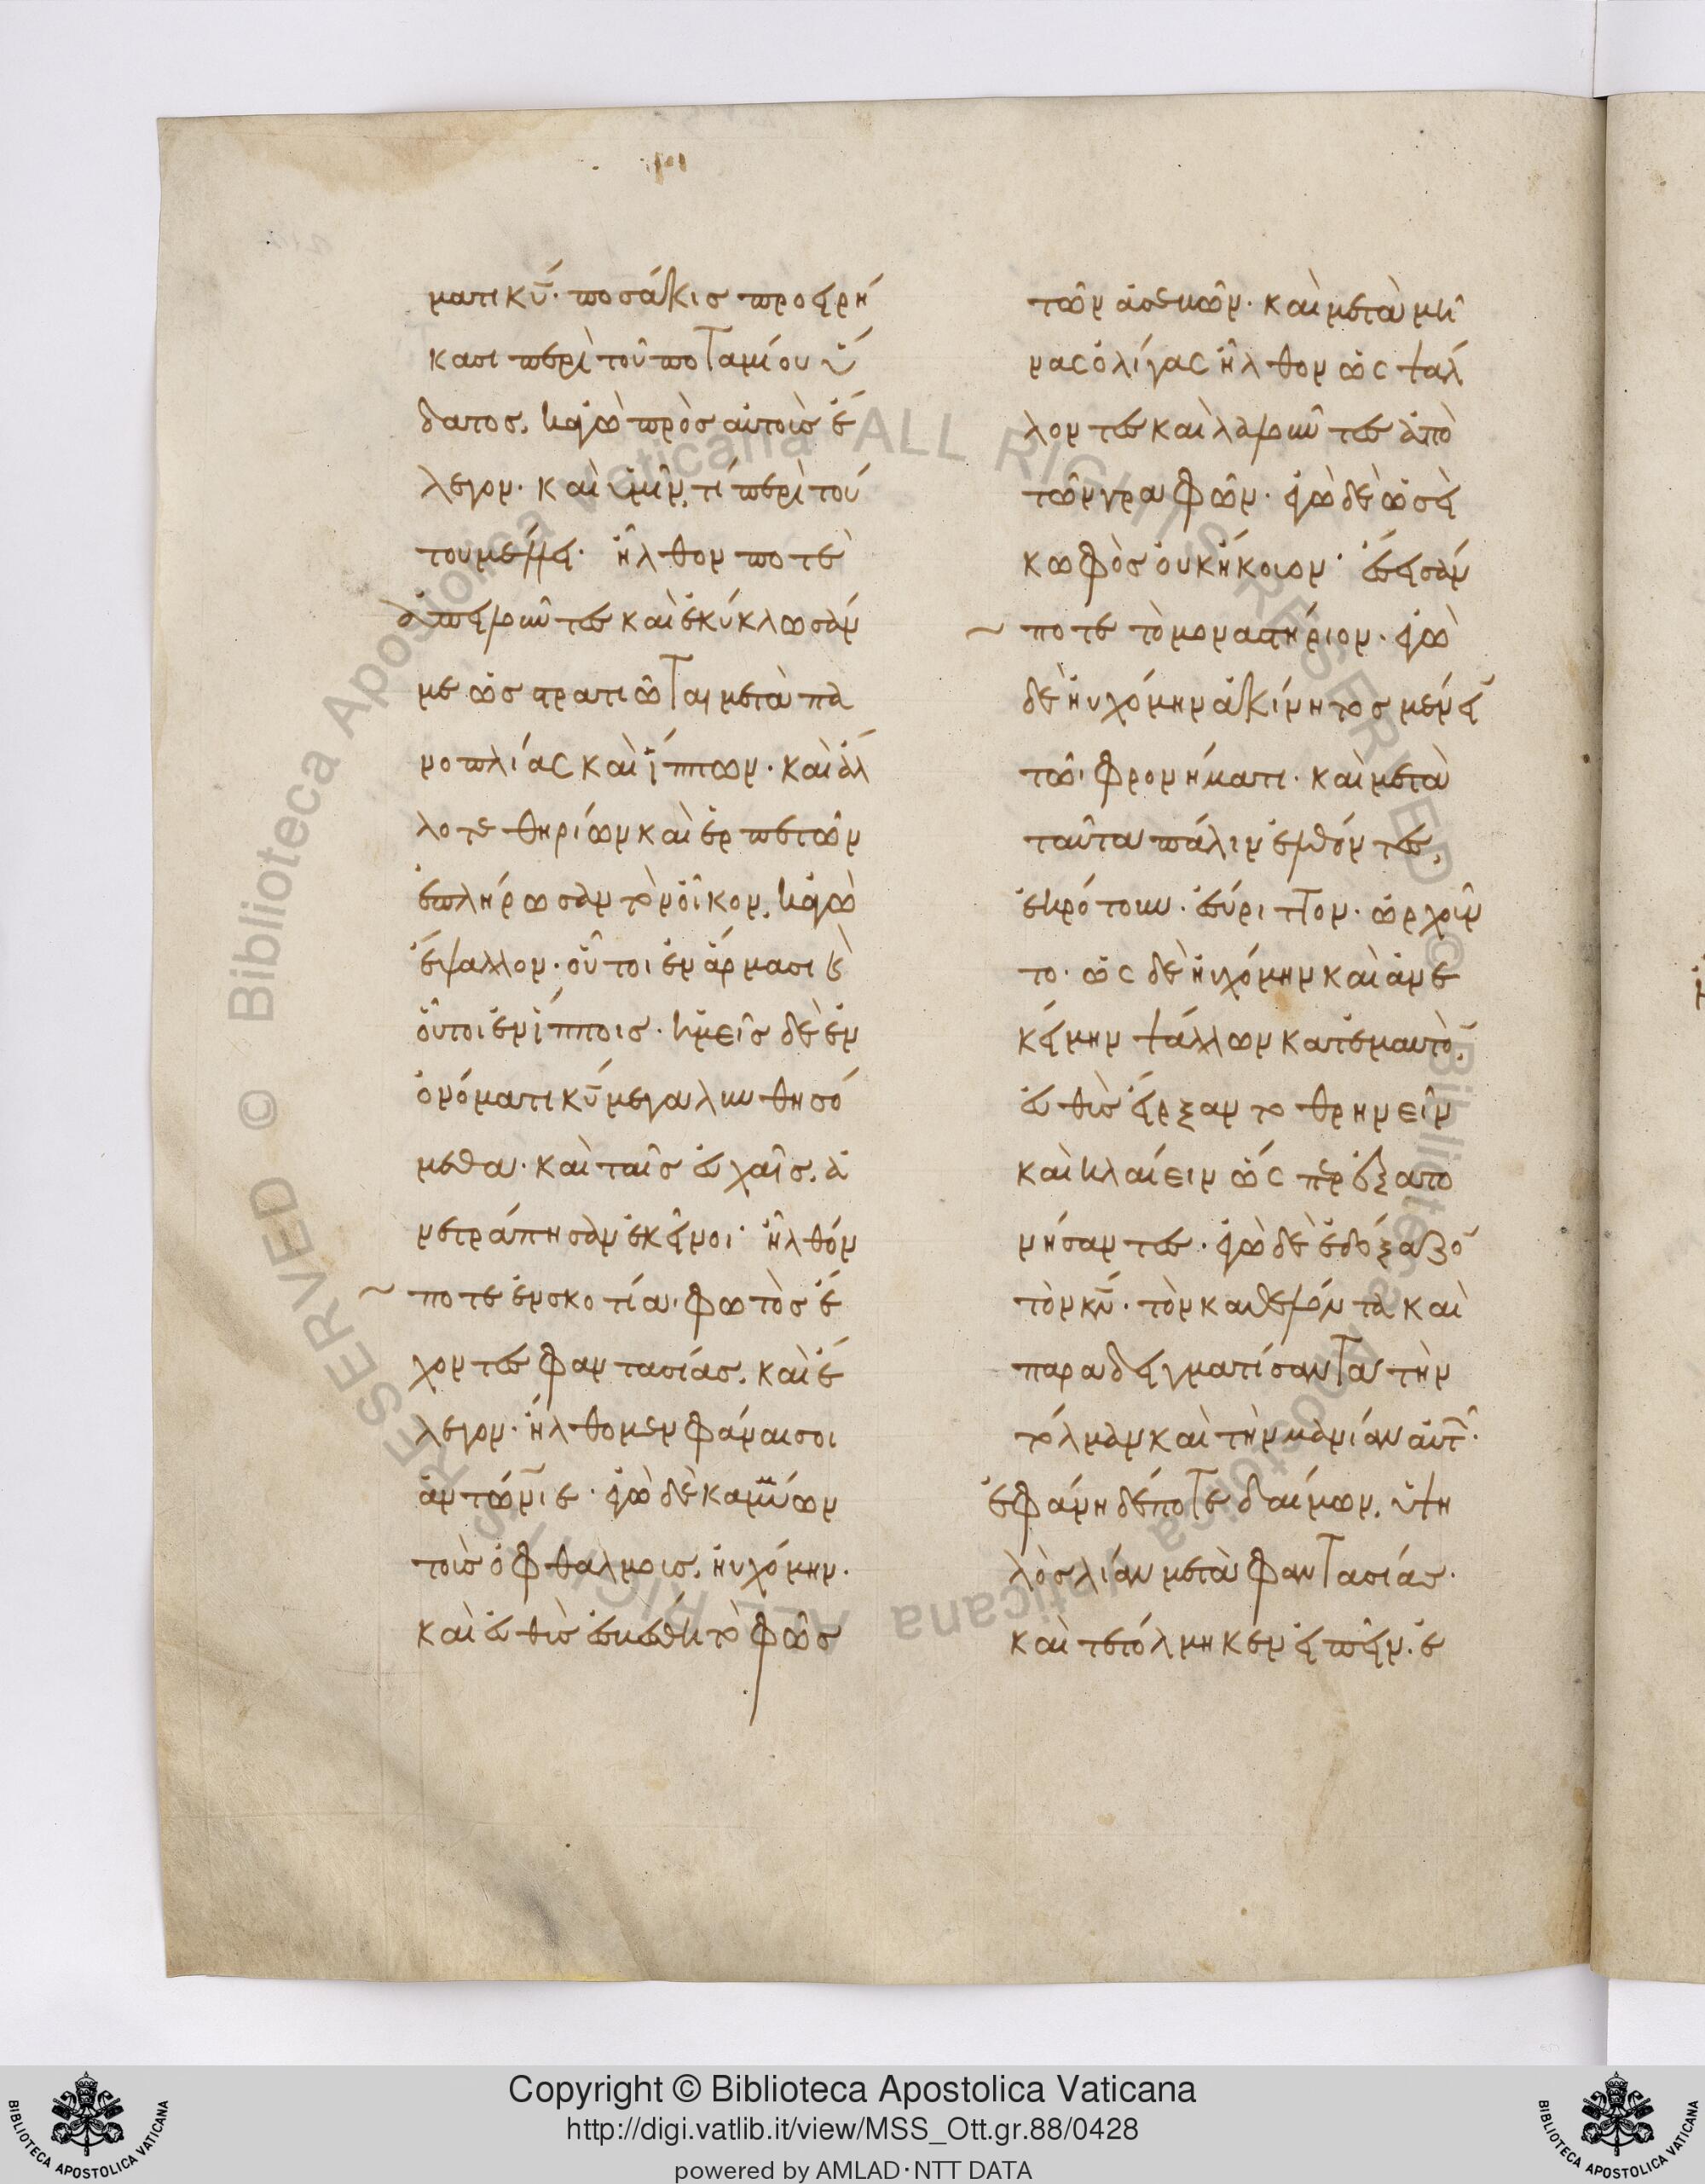 ματι κ̅υ̅· ποσάκις προειρή
κασι περὶ τοῦ ποταμίου ὕ
δατος, κἀγὼ πρὸς αὐτοὺς ἔ
λεγον· καὶ ὑμῖν, τί περὶ τού
του μέλλει· ἦλθον ποτὲ
ἀπειλοῦντες καὶ ἐκύκλωσάν
με ὡς στρατιῶται μετὰ πα
νοπλίας καὶ ἵππων· καὶ ἄλ
λοτε θηρίων καὶ ἑρπετῶν
ἐπλήρωσαν τὸν οἶκον, κἀγὼ
ἔψαλλον· οὗτοι ἐν ἅρμασι κὲ
οὗτοι ἐν ἵπποις· ἡμεῖς δὲ ἐν
ὀνόματι κ̅υ̅ μεγαλυνθησό
μεθα· καὶ ταῖς εὐχαῖς, ἀ
νετράπησαν ἐκεῖνοι· ἦλθόν
ποτε ἐν σκοτία, φωτὸς ἔ
χοντες φαντασίας, καὶ ἔ
λεγον· ἤλθομεν φάναι σοι
ἀντώνιε· ἐγὼ δὲ καμμύων
τοὺς ὀφθαλμοὺς, ηὐχόμην·
καὶ εὐθὺς ἐσβέσθη τὸ φῶς
τῶν ἀσεβῶν· καὶ μετὰ μῆ
νας ὀλίγας ἦλθον ὡς ψάλ
λοντες καὶ λαλοῦντες ἀπὸ
τῶν γραφῶν· ἐγὼ δὲ ὡσεὶ
κωφὸς οὐκ ἤκουον· ἔσεισάν
ποτε τὸ μοναστήριον· ἐγὼ
δὲ ηὐχόμην ἀκίνητος μένει
τῶ φρονήματι· καὶ μετὰ
ταῦτα πάλιν ἐλθόντες,
ἐκρότουν· ἐσύριττον· ὠρχοῦν
το· ὡς δὲ ηὐχόμην καὶ ἀνε
κείμην ψάλλων κατ' ἐμαυτὸ̅,
εὐθὺς εἴρξαντο θρηνεῖν
καὶ κλαίειν ὥσπερ ἐξατο
νήσαντες· ἐγὼ δὲ ἐδόξαζο̅
τὸν κ̅ν̅· τὸν καθελόντα καὶ
παραδειγματίσαντα τὴν
τόλμαν καὶ τὴν μανίαν αὐτ̅·
ἐφάνη δέ ποτε δαίμων, ὑψη
λὸς λίαν μετὰ φαντασίας·
καὶ τετόλμηκεν εἰπεῖν· ἐ